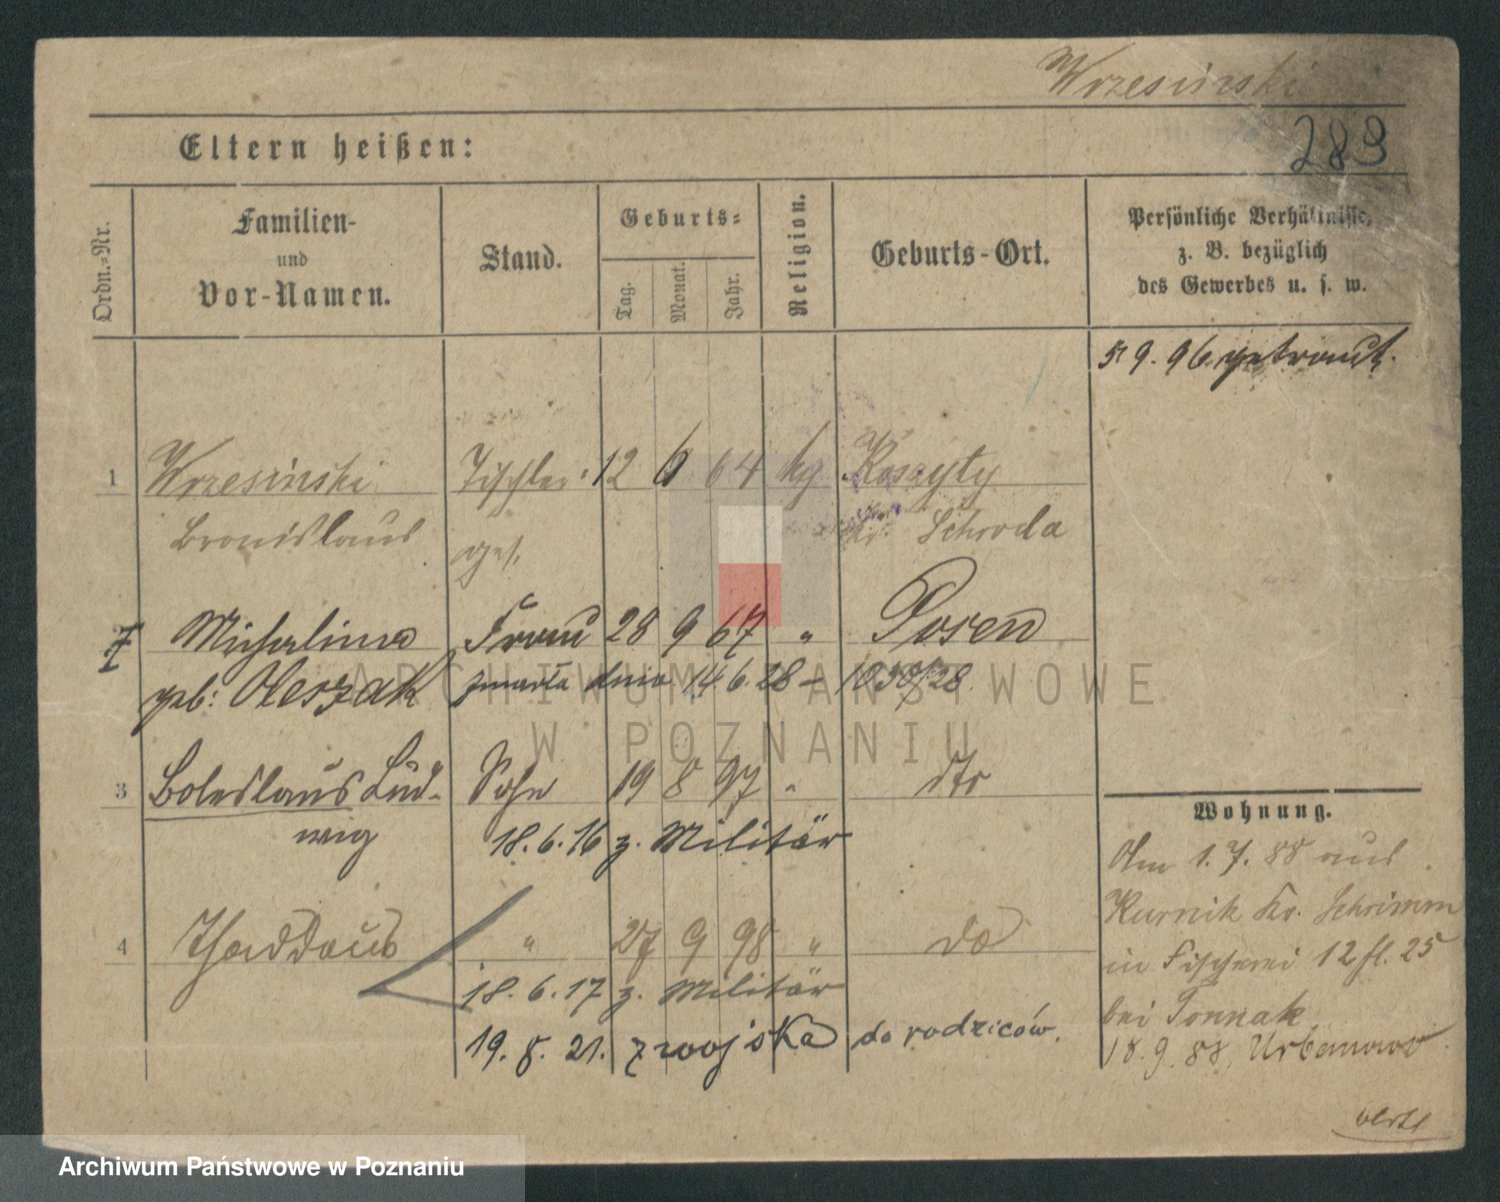 Wrzesinski
Eltern heißen:
283
Ordn.=Nr.
Familien-
und
Vor-Namen.
Stand.
Geburts=
Tag.
Monat.
Jahr.
Religion.
Geburts-Ort.
Persönliche Verhältnisse,
z. B. bezüglich
des Gewerbes u. s. w.
5 9. 96. getraut.
1 Wrzesinski Tischler 12 6 64 kg Koszyty
Bronislaus ges. Kr. Schroda
Michalina Frau 28 9 67 " Posen
geb: Oleszak zmarła dnia 14.6.28 – 1030/28.
3 Boleslaus Lud- Sohn 19 8 97 " dto
wig 18. 6. 16 z. Militär
4 Thaddaus " 27 9 98 " do
18. 6. 17 z. Militär
19. 8. 21. z wojska do rodziców.
Wohnung.
Am 1. 7. 88 aus
Kurnik Kr. Schrimm
in Fischerei 12 fl. 25
bei Tonnak
18. 9. 88, Urbanowo
verte
ARCHIWUM PAŃSTWOWE
W POZNANIU
Archiwum Państwowe w Poznaniu